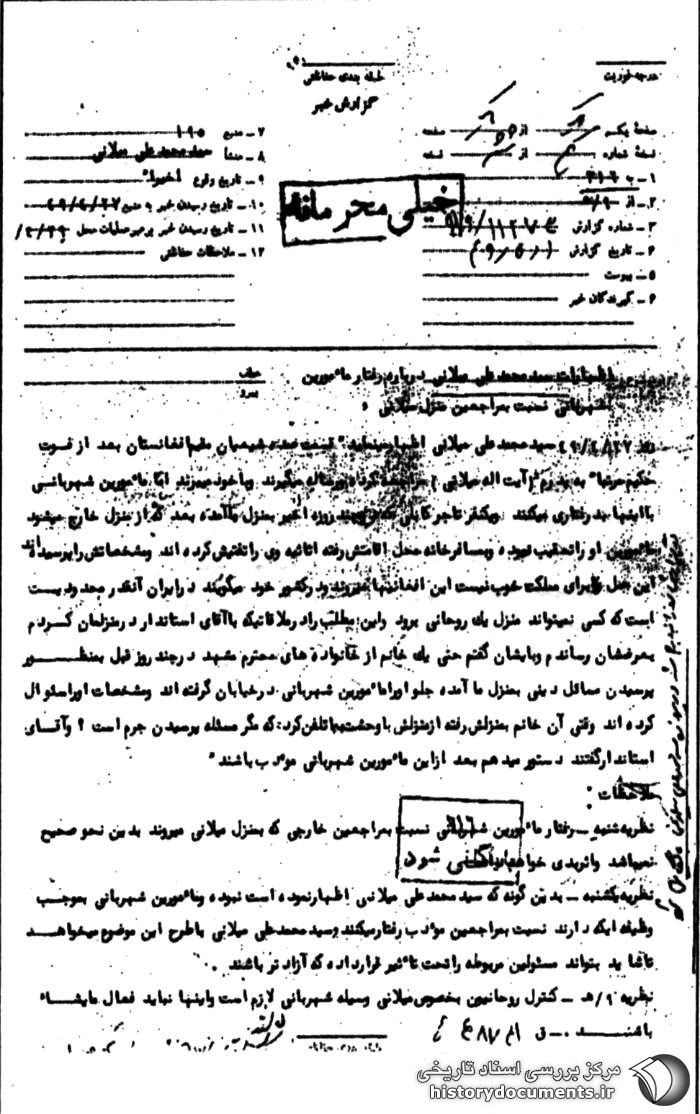 درجه فوریت
طبقه بندی حفاظتی
گزارش خبر
صفحه یکم از صفحه
نسخه شماره از نسخه
۱ـ به ۳۱۲
۲ـ از ۹/ه
۳ـ شماره گزارش
۴ـ تاریخ گزارش
۵ـ پیوست
۶ـ گیرندگان خبر
۷ـ منبع
۸ـ منشأ سید محمد علی میلانی
۹ـ تاریخ وقوع اخیرا"
۱۰ـ تاریخ رسیدن خبر به منبع ۴۹/۴/۲۷
۱۱ـ تاریخ رسیدن خبر برهبر عملیات محل
۱۲ـ ملاحظات حفاظتی
خیلی محرمانه
اظهارات سید محمد علی میلانی درباره رفتار مأمورین
شهربانی نسبت بمراجعین منزل میلانی
روز ۴۹/۴/۲۷ سید محمد علی میلانی اظهار میداشت شیعیان مقیم افغانستان بعد از فوت
حکیم مرتبا" به پدرم ( آیت اله میلانی ) مراجعه کرده و رساله میگیرند وباخود میبرند اما مأمورین شهربانی
بااینها بدرفتاری میکنند ویکنفر تاجر کابلی که چند روزه اخیر بمنزل ما آمده بعد که از منزل خارج میشود
مأمورین او را تعقیب نموده وبمسافرخانه محل اقامتش رفته اثاثیه وی را تفتیش کرده اند ومشخاتش را پرسیده اند
این عمل برای مملکت خوب نیست این افغانیها میروند ودرکشور خود میگویند درایران آنقدر محدودیت
است که کسی نمیتواند منزل یك روحانی برود واین مطلب را در ملاقاتیکه باآقای استاندار در منزلمان کردم
بعرضشان رساندم وبایشان گفتم حتی یك خانم از خانواده های محترم مشهد در چند روز قبل بمنظور
پرسیدن مسائل دینی بمنزل ما آمده جلو او را مأمورین شهربانی در خیابان گرفته اند ومشخصات اورا سئوال
کرده اند وقتی آن خانم بمنزلش رفته از منزلش با وحشت بما تلفن کرد که مگر مسئله پرسیدن جرم است ؟ وآقای
استاندار گفتند دستور میدهم بعد از این مأمورین شهربانی مؤدب باشند"
ملاحظات :
نظریه شنبه ـ رفتار مأمورین شهربانی نسبت بمراجعین خارجی که بمنزل میلانی میروند بدین نحو صحیح
نمیباشد واثر بدی خواهد
بایگانی شود
نظریه یکشنبه ـ بدین گونه که سید محمد علی میلانی اظهار نموده است نبوده ومأمورین شهربانی بموجب
وظیفه ایکه دارند نسبت بمراجعین مؤدب رفتار میکنند وسید محمد علی میلانی باطرح این موضوع میخواهد
تا شاید بتواند مسئولین مربوطه را تحت تأثیر قرار داده که آزادتر باشند .
نظریه ۹/ه ـ کنترل روحانیون بخصوص میلانی وسیله شهربانی لازم است واینها نباید فعال مایشاء
باشند . ق
مرکز بررسی اسناد تاریخی
historydocuments.ir